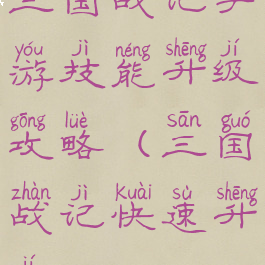 三国战记手
yóu jì néng shēng jí
游技能升级
gōng lüè sān guó
攻略（三国
zhàn jì Kuài sù shēng
战记快速升
jí